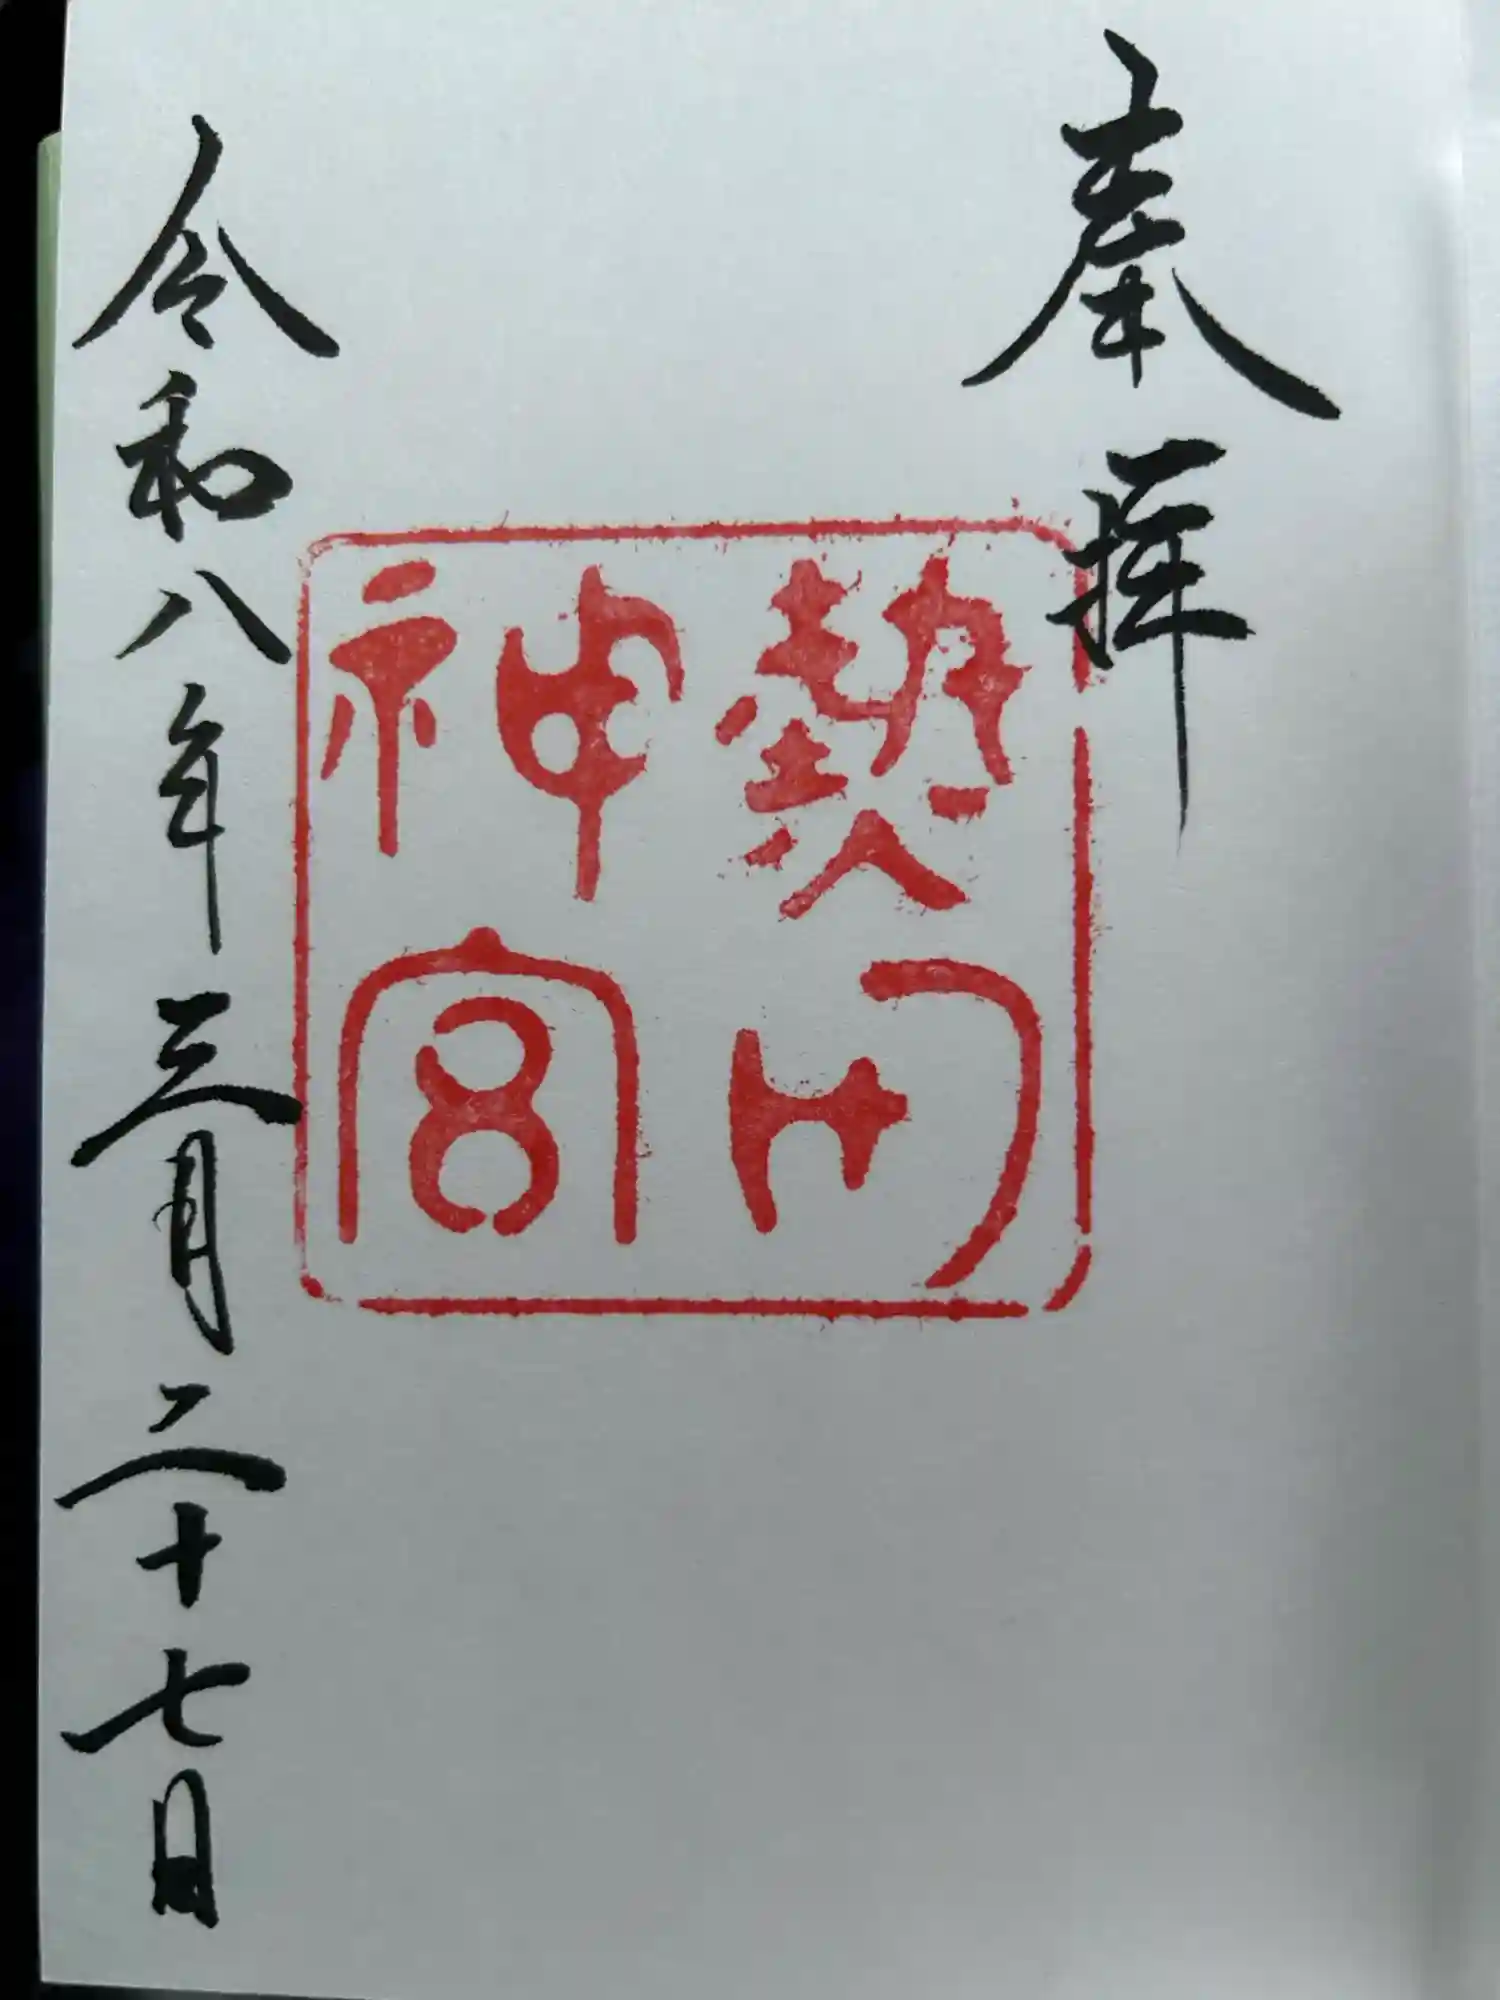 奉拝
熱田神宮
令和八年三月二十七日